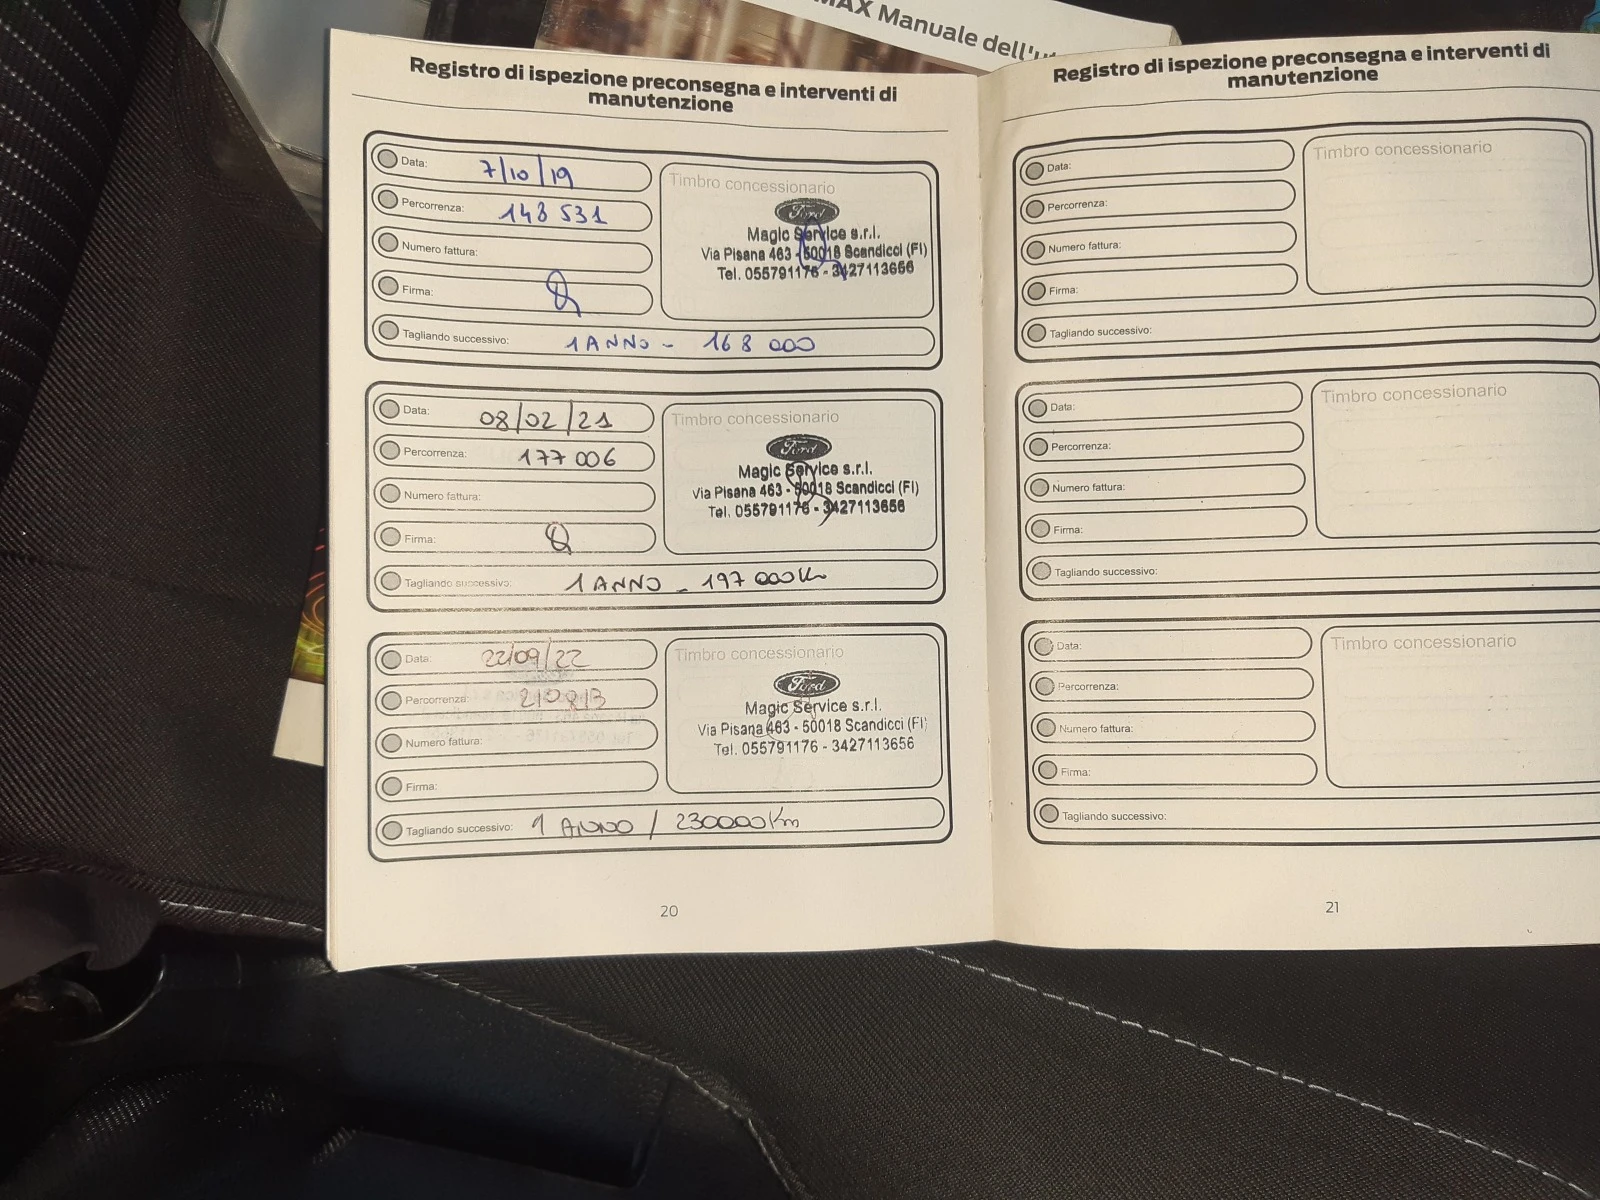 MAX Manuale dell'u
Registro di ispezione preconsegna e interventi di
manutenzione
Data: 7/10/19
Percorrenza: 148 531
Numero fattura:
Firma:
Tagliando successivo: 1 ANNO - 168 000
Timbro concessionario
Ford
Magic Service s.r.l.
Via Pisana 463 - 50018 Scandicci (FI)
Tel. 055791176 - 3427113656
Data: 08/02/21
Percorrenza: 177 006
Numero fattura:
Firma:
Tagliando successivo: 1 ANNO - 197 000 Km
Timbro concessionario
Ford
Magic Service s.r.l.
Via Pisana 463 - 50018 Scandicci (FI)
Tel. 055791176 - 3427113656
Data: 22/09/22
Percorrenza: 210813
Numero fattura:
Firma:
Tagliando successivo: 1 ANNO / 230000 Km
Timbro concessionario
Ford
Magic Service s.r.l.
Via Pisana 463 - 50018 Scandicci (FI)
Tel. 055791176 - 3427113656
20
Registro di ispezione preconsegna e interventi di
manutenzione
Data:
Percorrenza:
Numero fattura:
Firma:
Tagliando successivo:
Timbro concessionario
Data:
Percorrenza:
Numero fattura:
Firma:
Tagliando successivo:
Timbro concessionario
Data:
Percorrenza:
Numero fattura:
Firma:
Tagliando successivo:
Timbro concessionario
21